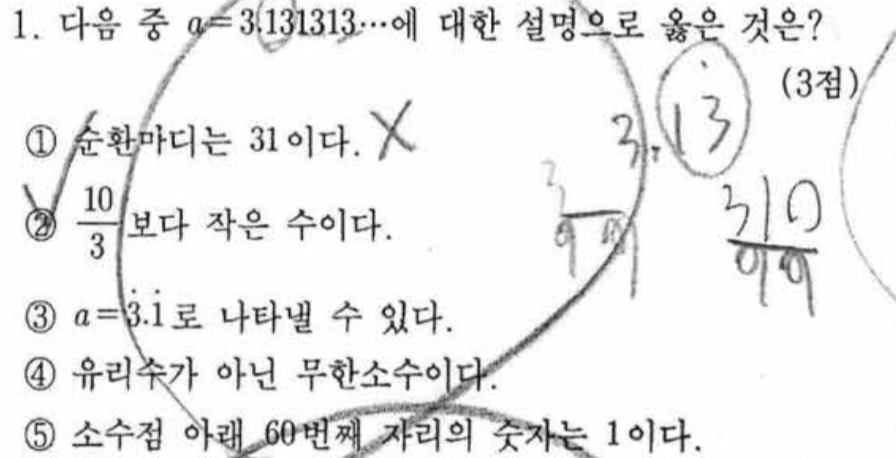 1. 다음 중 a=3.131313…에 대한 설명으로 옳은 것은?
(3점)
① 순환마디는 31이다. X
3.1̇3̇
② 10/3보다 작은 수이다.
3/99
310/99
③ a=3̇.1̇로 나타낼 수 있다.
④ 유리수가 아닌 무한소수이다.
⑤ 소수점 아래 60번째 자리의 숫자는 1이다.